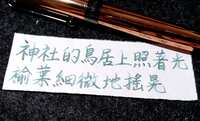 神社的鳥居上照著光
榆葉細微地搖晃